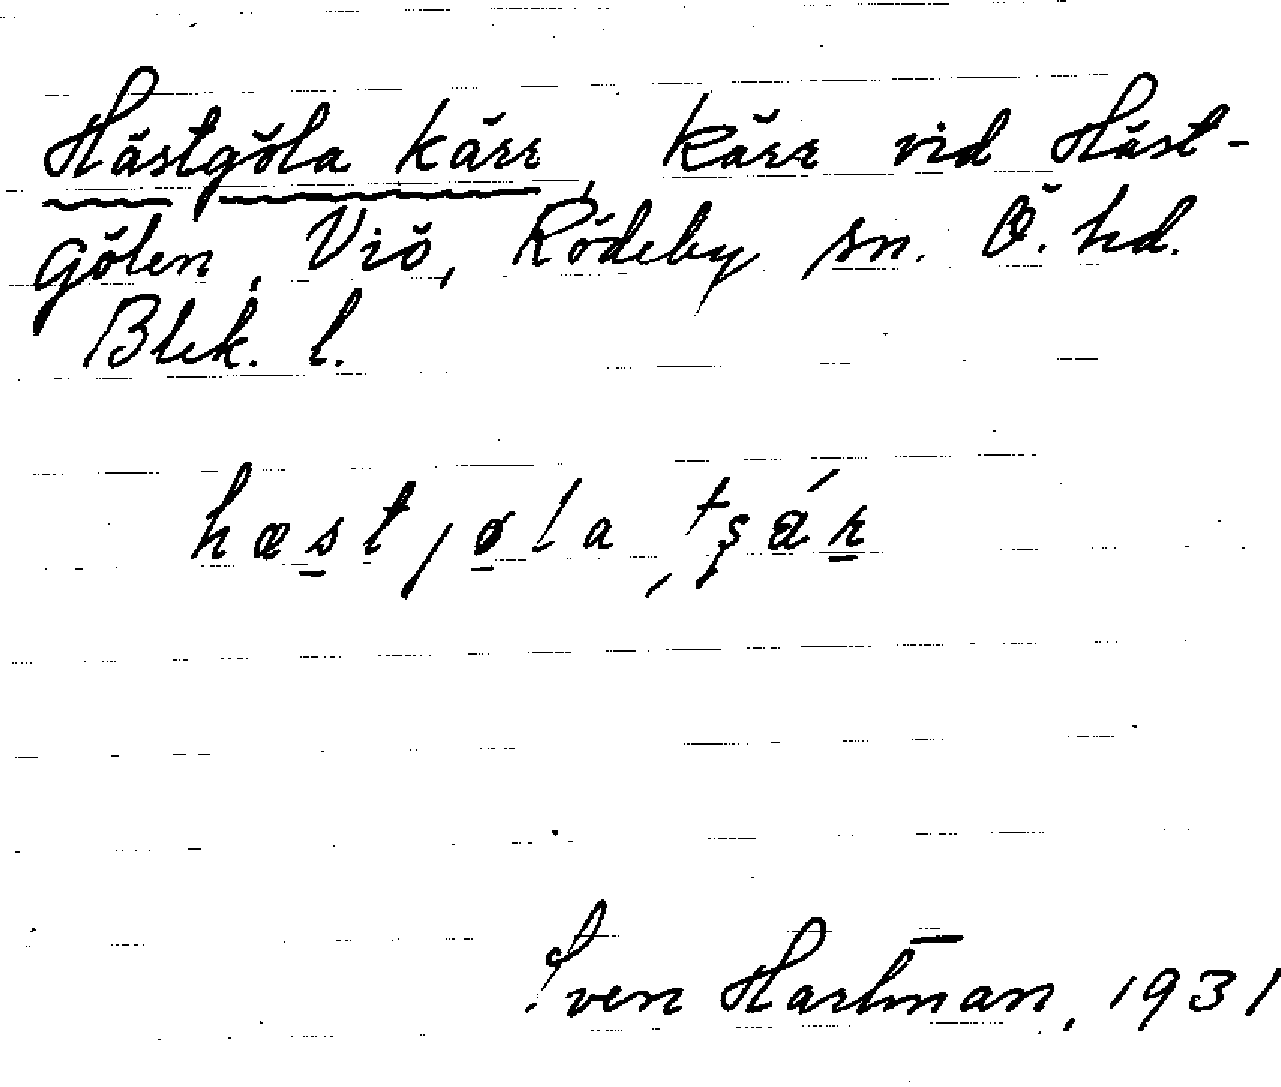 Hästgöla kärr, kärr vid Häst-
gölen, Viö, Rödeby sn. Ö. hd.
Blek. l.
hæstjøla, tʂær
Sven Hartman, 1931